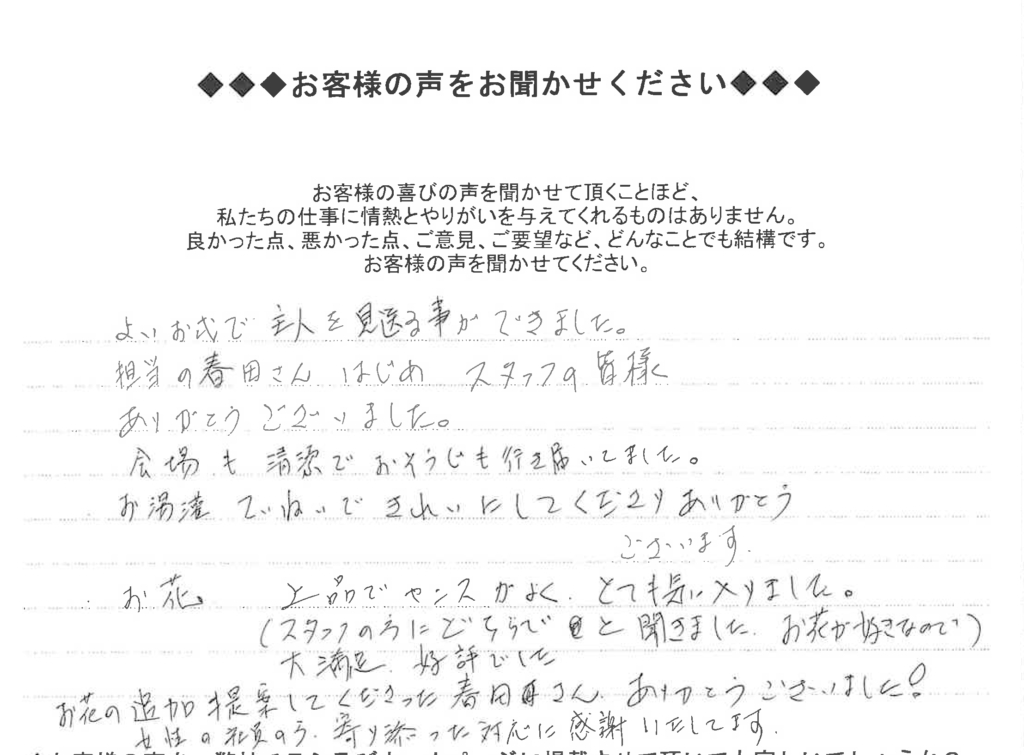 ◆◆◆お客様の声をお聞かせください◆◆◆
お客様の喜びの声を聞かせて頂くことほど、
私たちの仕事に情熱とやりがいを与えてくれるものはありません。
良かった点、悪かった点、ご意見、ご要望など、どんなことでも結構です。
お客様の声を聞かせてください。
よいお式で 主人を見送る事ができました。
担当の春田さん はじめ スタッフの皆様
ありがとうございました。
会場も 清潔で おそうじも行き届いてました。
お湯灌 ていねいで きれいにしてくださりありがとう
ございます.
お花 上品でセンスがよく. とても気に入りました。
(スタッフの方にどちらでと聞きました. お花が好きなので)
大満足. 好評でした
お花の追加提案してくださった春田さん. ありがとうございました!
女性の社員の方. 寄り添った対応に感謝いたしてます.